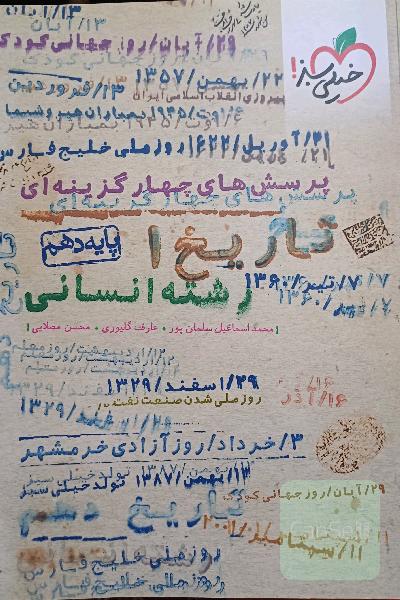 ۱۳/آبان
۱۳/آبان
خیلی سبز!
۲۹/آبان/روز جهانی کودک
۲۲/بهمن/۱۳۵۷
پیروزی انقلاب اسلامی ایران
۱۳/فروردین
۶/اوت/۱۹۴۵/بمباران هیروشیما
۲۱/آوریل/۱۶۲۲/روز ملی خلیج فارس
پرسش‌های چهارگزینه‌ای
پرسش‌های چهارگزینه‌ای
تاریخ ۱
پایه دهم
۷/تیر/۱۳۶۰
رشته انسانی
| محمد اسماعیل سلمان پور • عارف گلپوری • محسن مصلایی |
۲۹/اسفند/۱۳۲۹
روز ملی شدن صنعت نفت
۱۶/آذر
۲۹/اسفند/۱۳۲۹
۳/خرداد/روز آزادی خرمشهر
۱۳/بهمن/۱۳۸۷ تولد خیلی سبز
۲۹/آبان/روز جهانی کودک
تاریخ دهم
۱۱/سپتامبر/۲۰۰۱
روز ملی خلیج فارس
روز ملی خلیج فارس